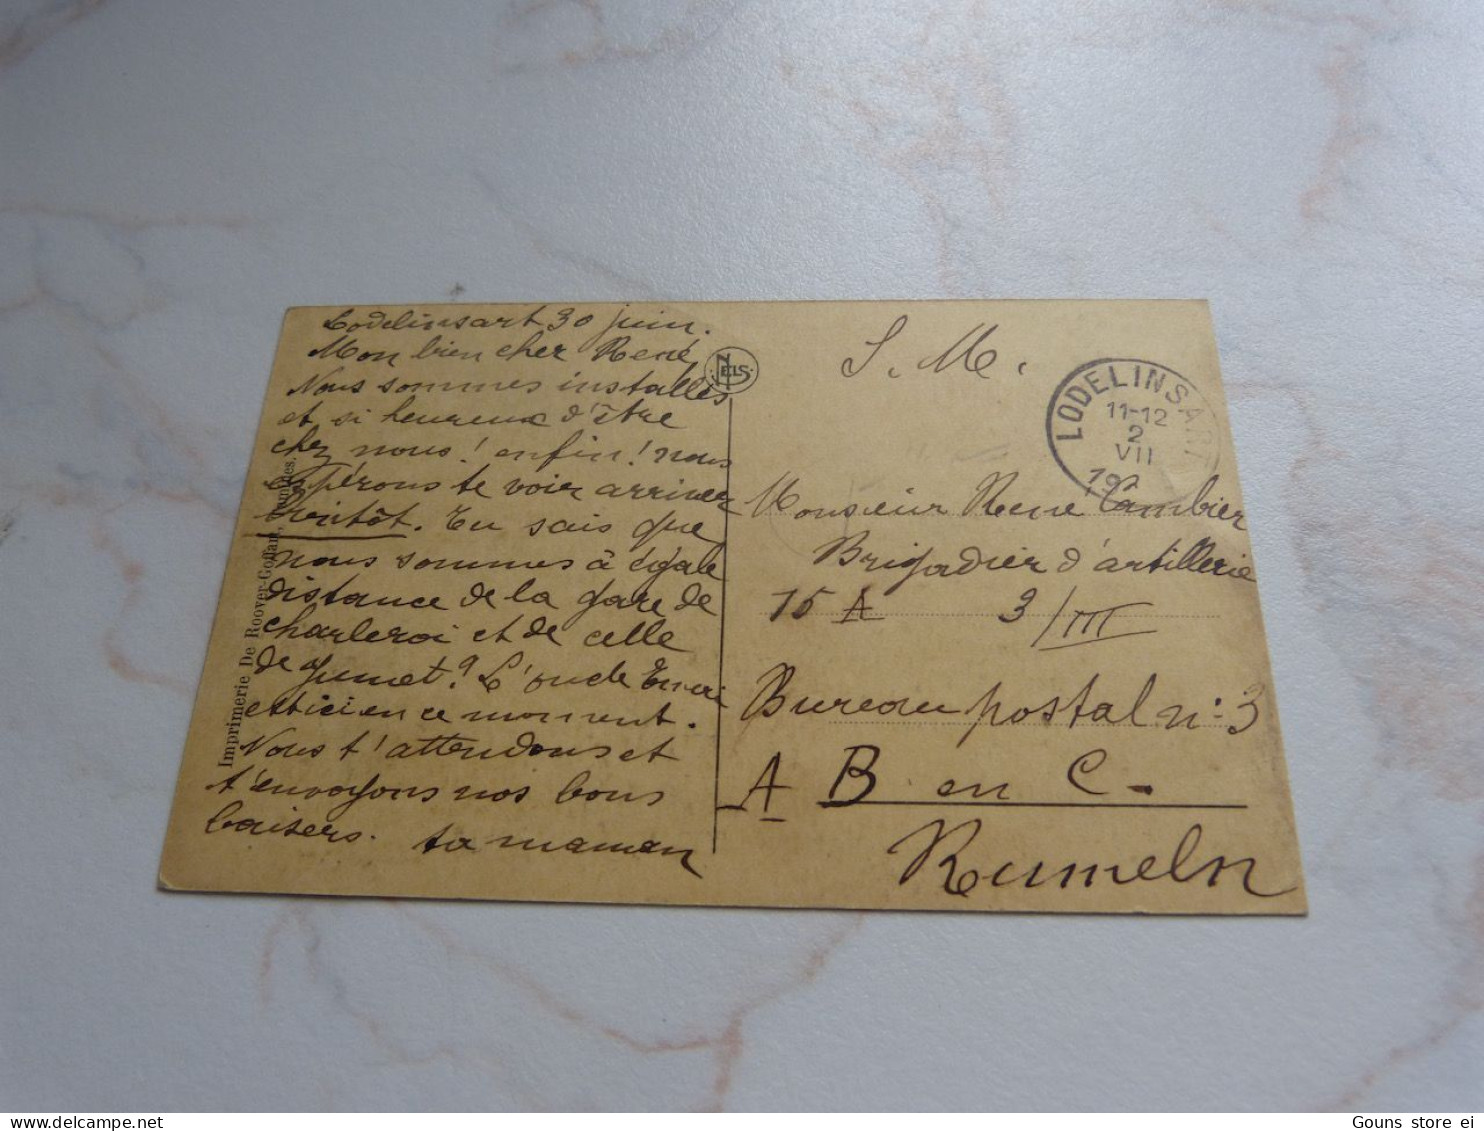 Lodelinsart 30 juin.
Mon bien cher René
Nous sommes installés
et si heureux d'être
chez nous! enfin! nous
espérons te voir arriver
bientôt. Tu sais que
nous sommes à égale
distance de la gare de
Charleroi et de celle
de Jumet? L'oncle
est ici en ce moment.
Nous t'attendons et
t'envoyons nos bons
baisers. ta maman
Imprimerie De Roover-Goffart,
NELS
S. M.
LODELINSART
11-12
2
VII
192
Monsieur René Cambier
Brigadier d'artillerie
15 A 3/III
Bureau postal n: 3
A B en C.
Rumeln
www.delcampe.net
Gouns store ei